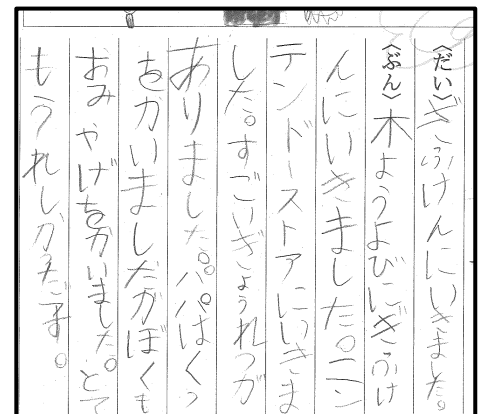 〈だい〉ぎふけんにいきました。
〈ぶん〉木ようよびにぎふけ
んにいきました。ニン
テンドーストアにいきま
した。すごいぎょうれつが
ありました。パパはくつ
をかいましたがぼくも
おみやげをかいました。とて
もうれしかたです。